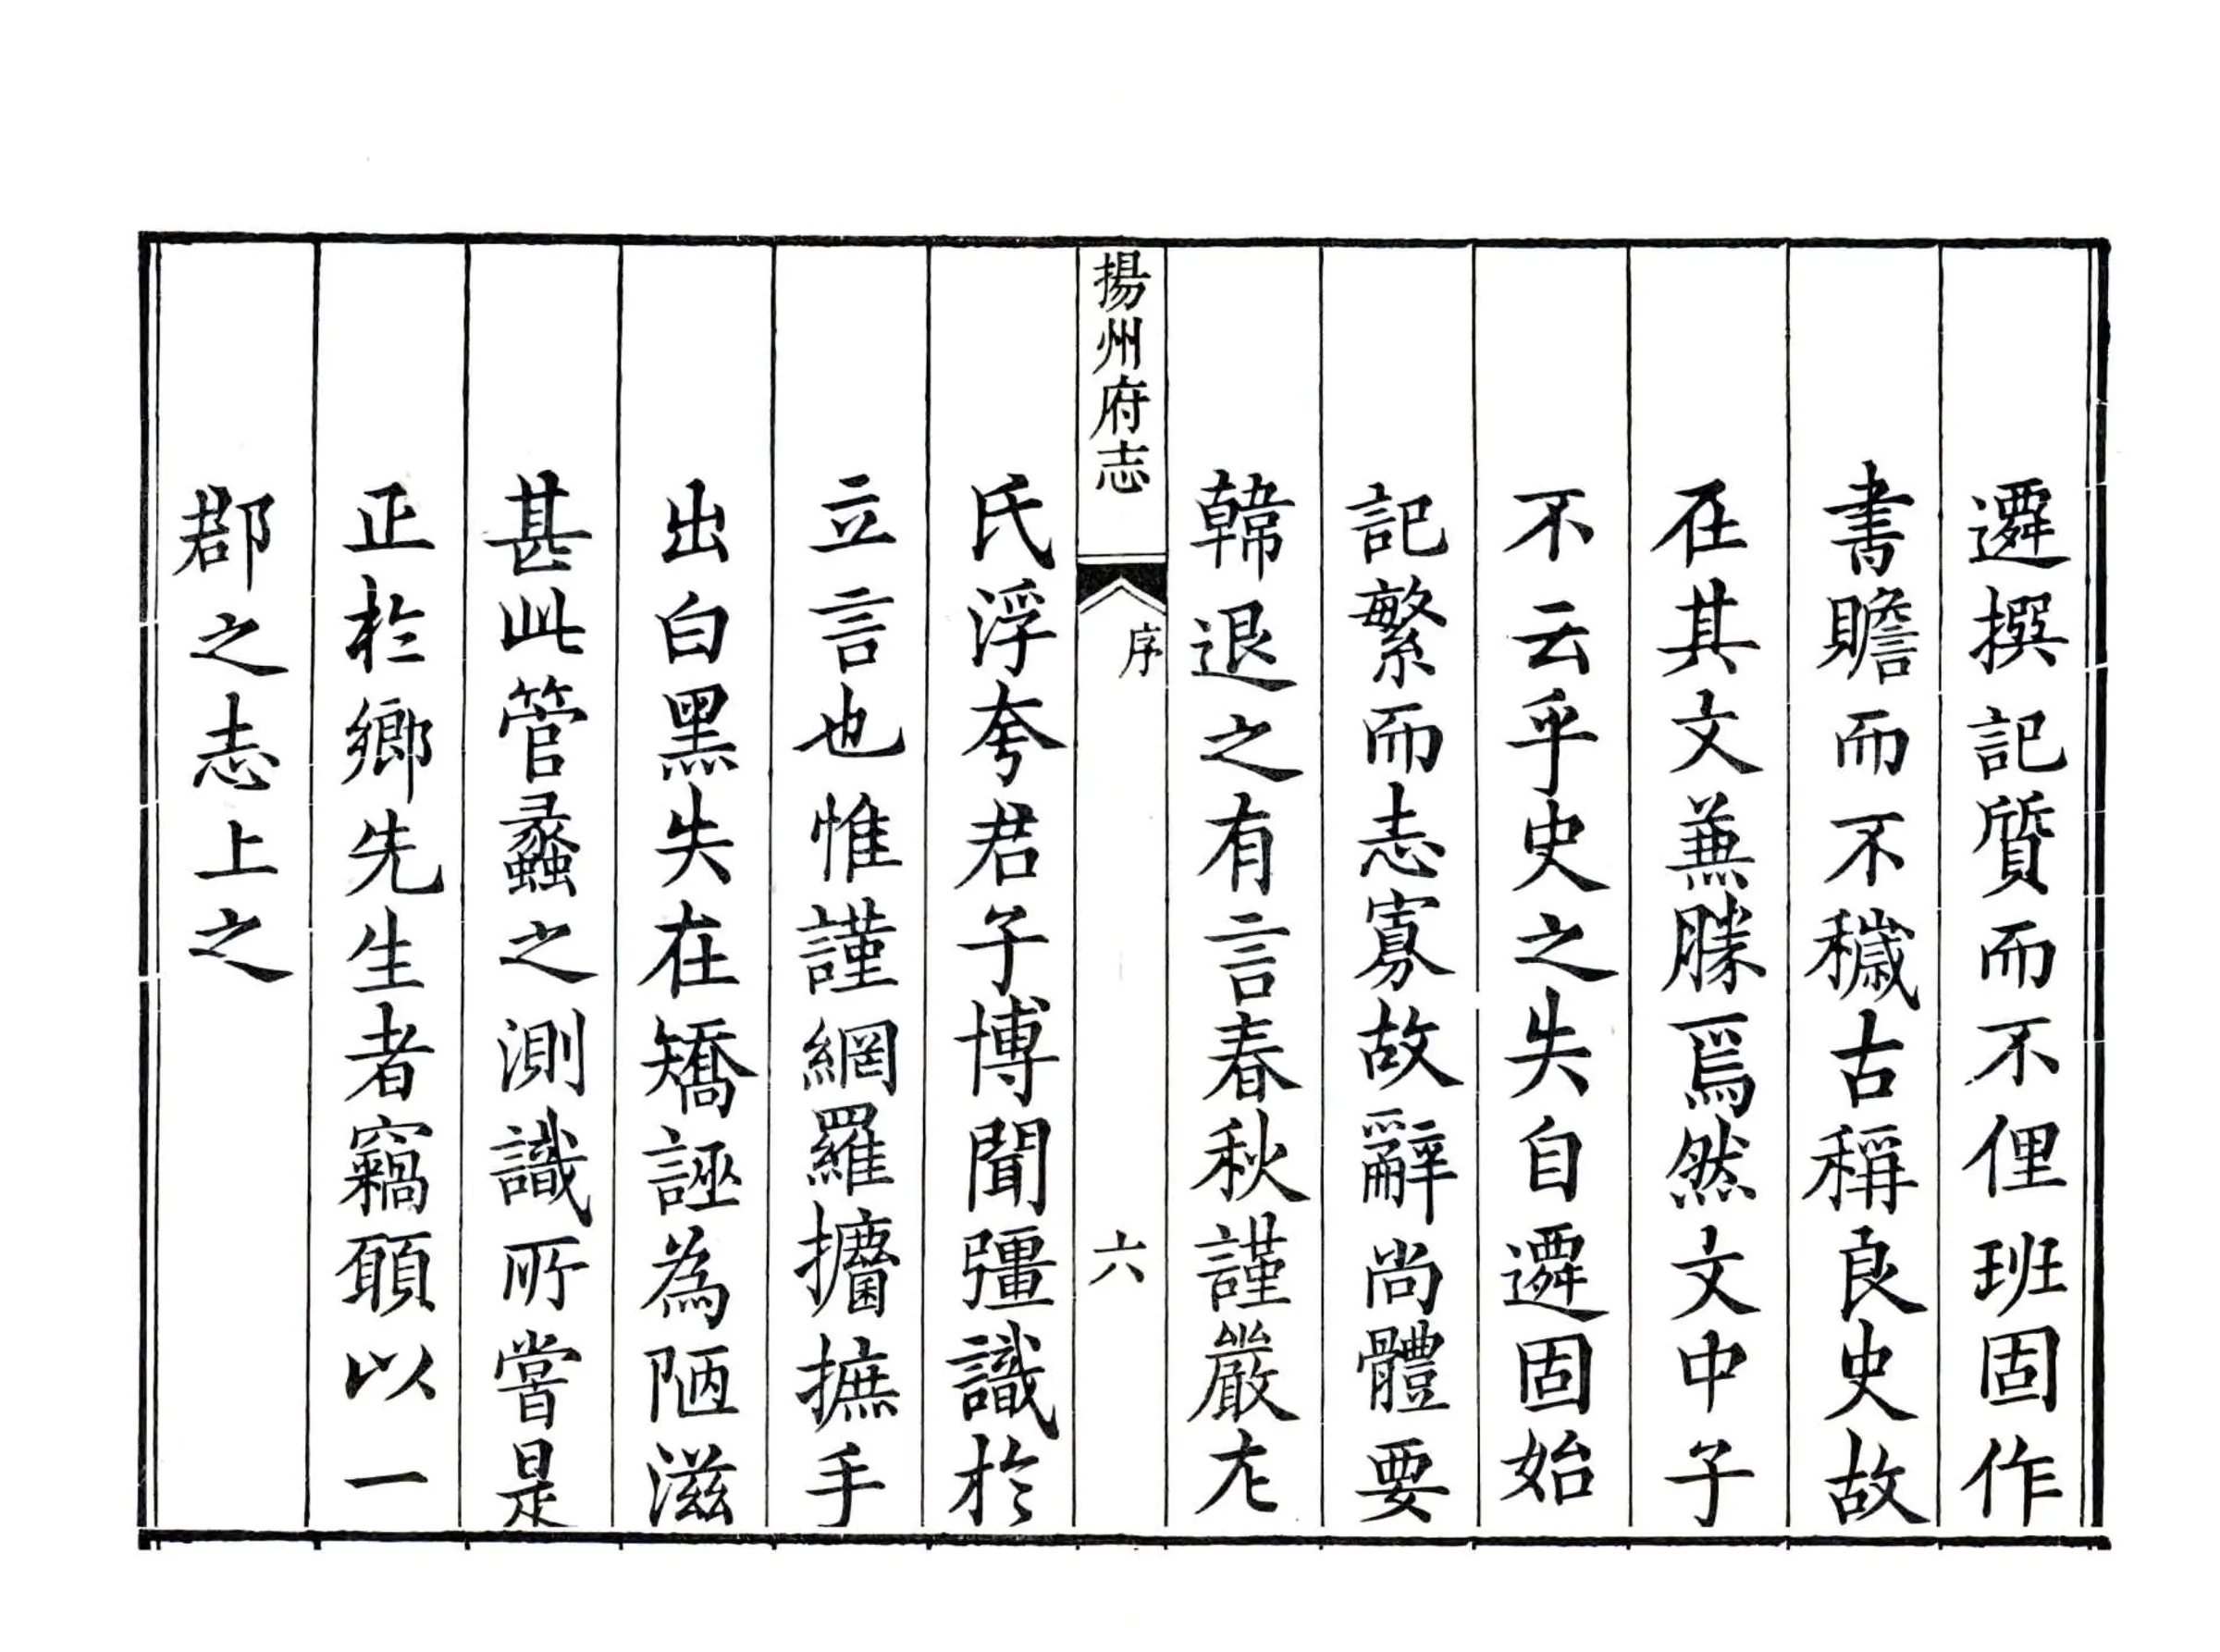 遷撰記質而不俚班固作
書贍而不穢古稱良史故
在其文兼勝焉然文中子
不云乎史之失自遷固始
記繁而志寡故辭尚體要
韓退之有言春秋謹嚴左
揚州府志
序
六
氏浮夸君子博聞彊識於
立言也惟謹網羅攟摭手
出白黑失在矯誣為陋滋
甚此管蠡之測識所嘗是
正於鄉先生者竊願以一
郡之志上之